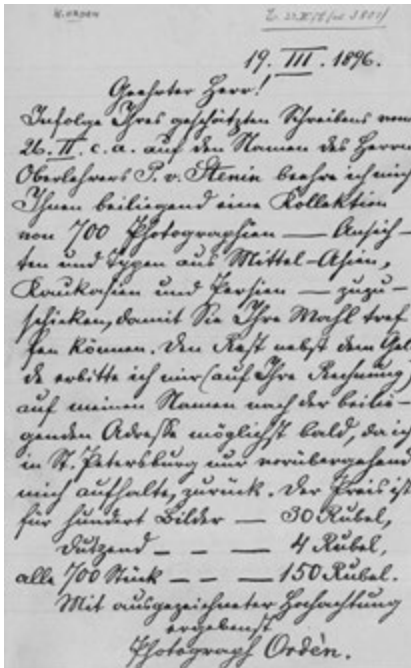 W. ORDEN
19. III. 1896.
Geehrter Herr!
Infolge Ihres geschätzten Schreibens vom
26. II. c. a. auf den Namen des Herrn
Oberlehrers P. v. Stenin beehre ich mich
Ihnen beiliegend eine Kollektion
von 700 Photographien — Ansich-
ten und Typen aus Mittel-Asien,
Kaukasien und Persien — zuzu-
schicken, damit Sie Ihre Wahl tref
fen können. Den Rest nebst dem Gel
de erbitte ich mir (auf Ihre Rechnung)
auf meinen Namen nach der beilie-
genden Adresse möglichst bald, da ich
in St. Petersburg nur vorübergehend
mich aufhalte, zurück. Der Preis ist
für hundert Bilder — 30 Rubel,
Dutzend — — — 4 Rubel,
alle 700 Stück — — — 150 Rubel.
Mit ausgezeichneter Hochachtung
ergebenst
Photograph Ordèn.